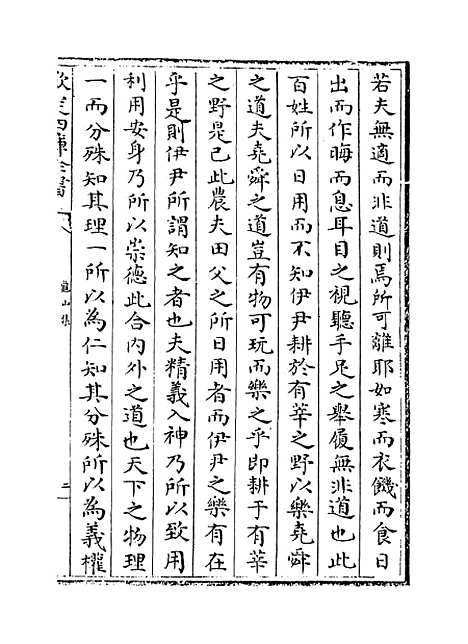 若夫無適而非道則焉所可離耶如寒而衣饑而食日
出而作晦而息耳目之視聽手足之舉履無非道也此
百姓所以日用而不知伊尹耕於有莘之野以樂堯舜
之道夫堯舜之道豈有物可玩而樂之乎即耕于有莘
之野是已此農夫田父之所日用者而伊尹之樂有在
乎是則伊尹所謂知之者也夫精義入神乃所以致用
利用安身乃所以崇德此合内外之道也天下之物理
一而分殊知其理一所以為仁知其分殊所以為義權
欽定四庫全書
龜山集